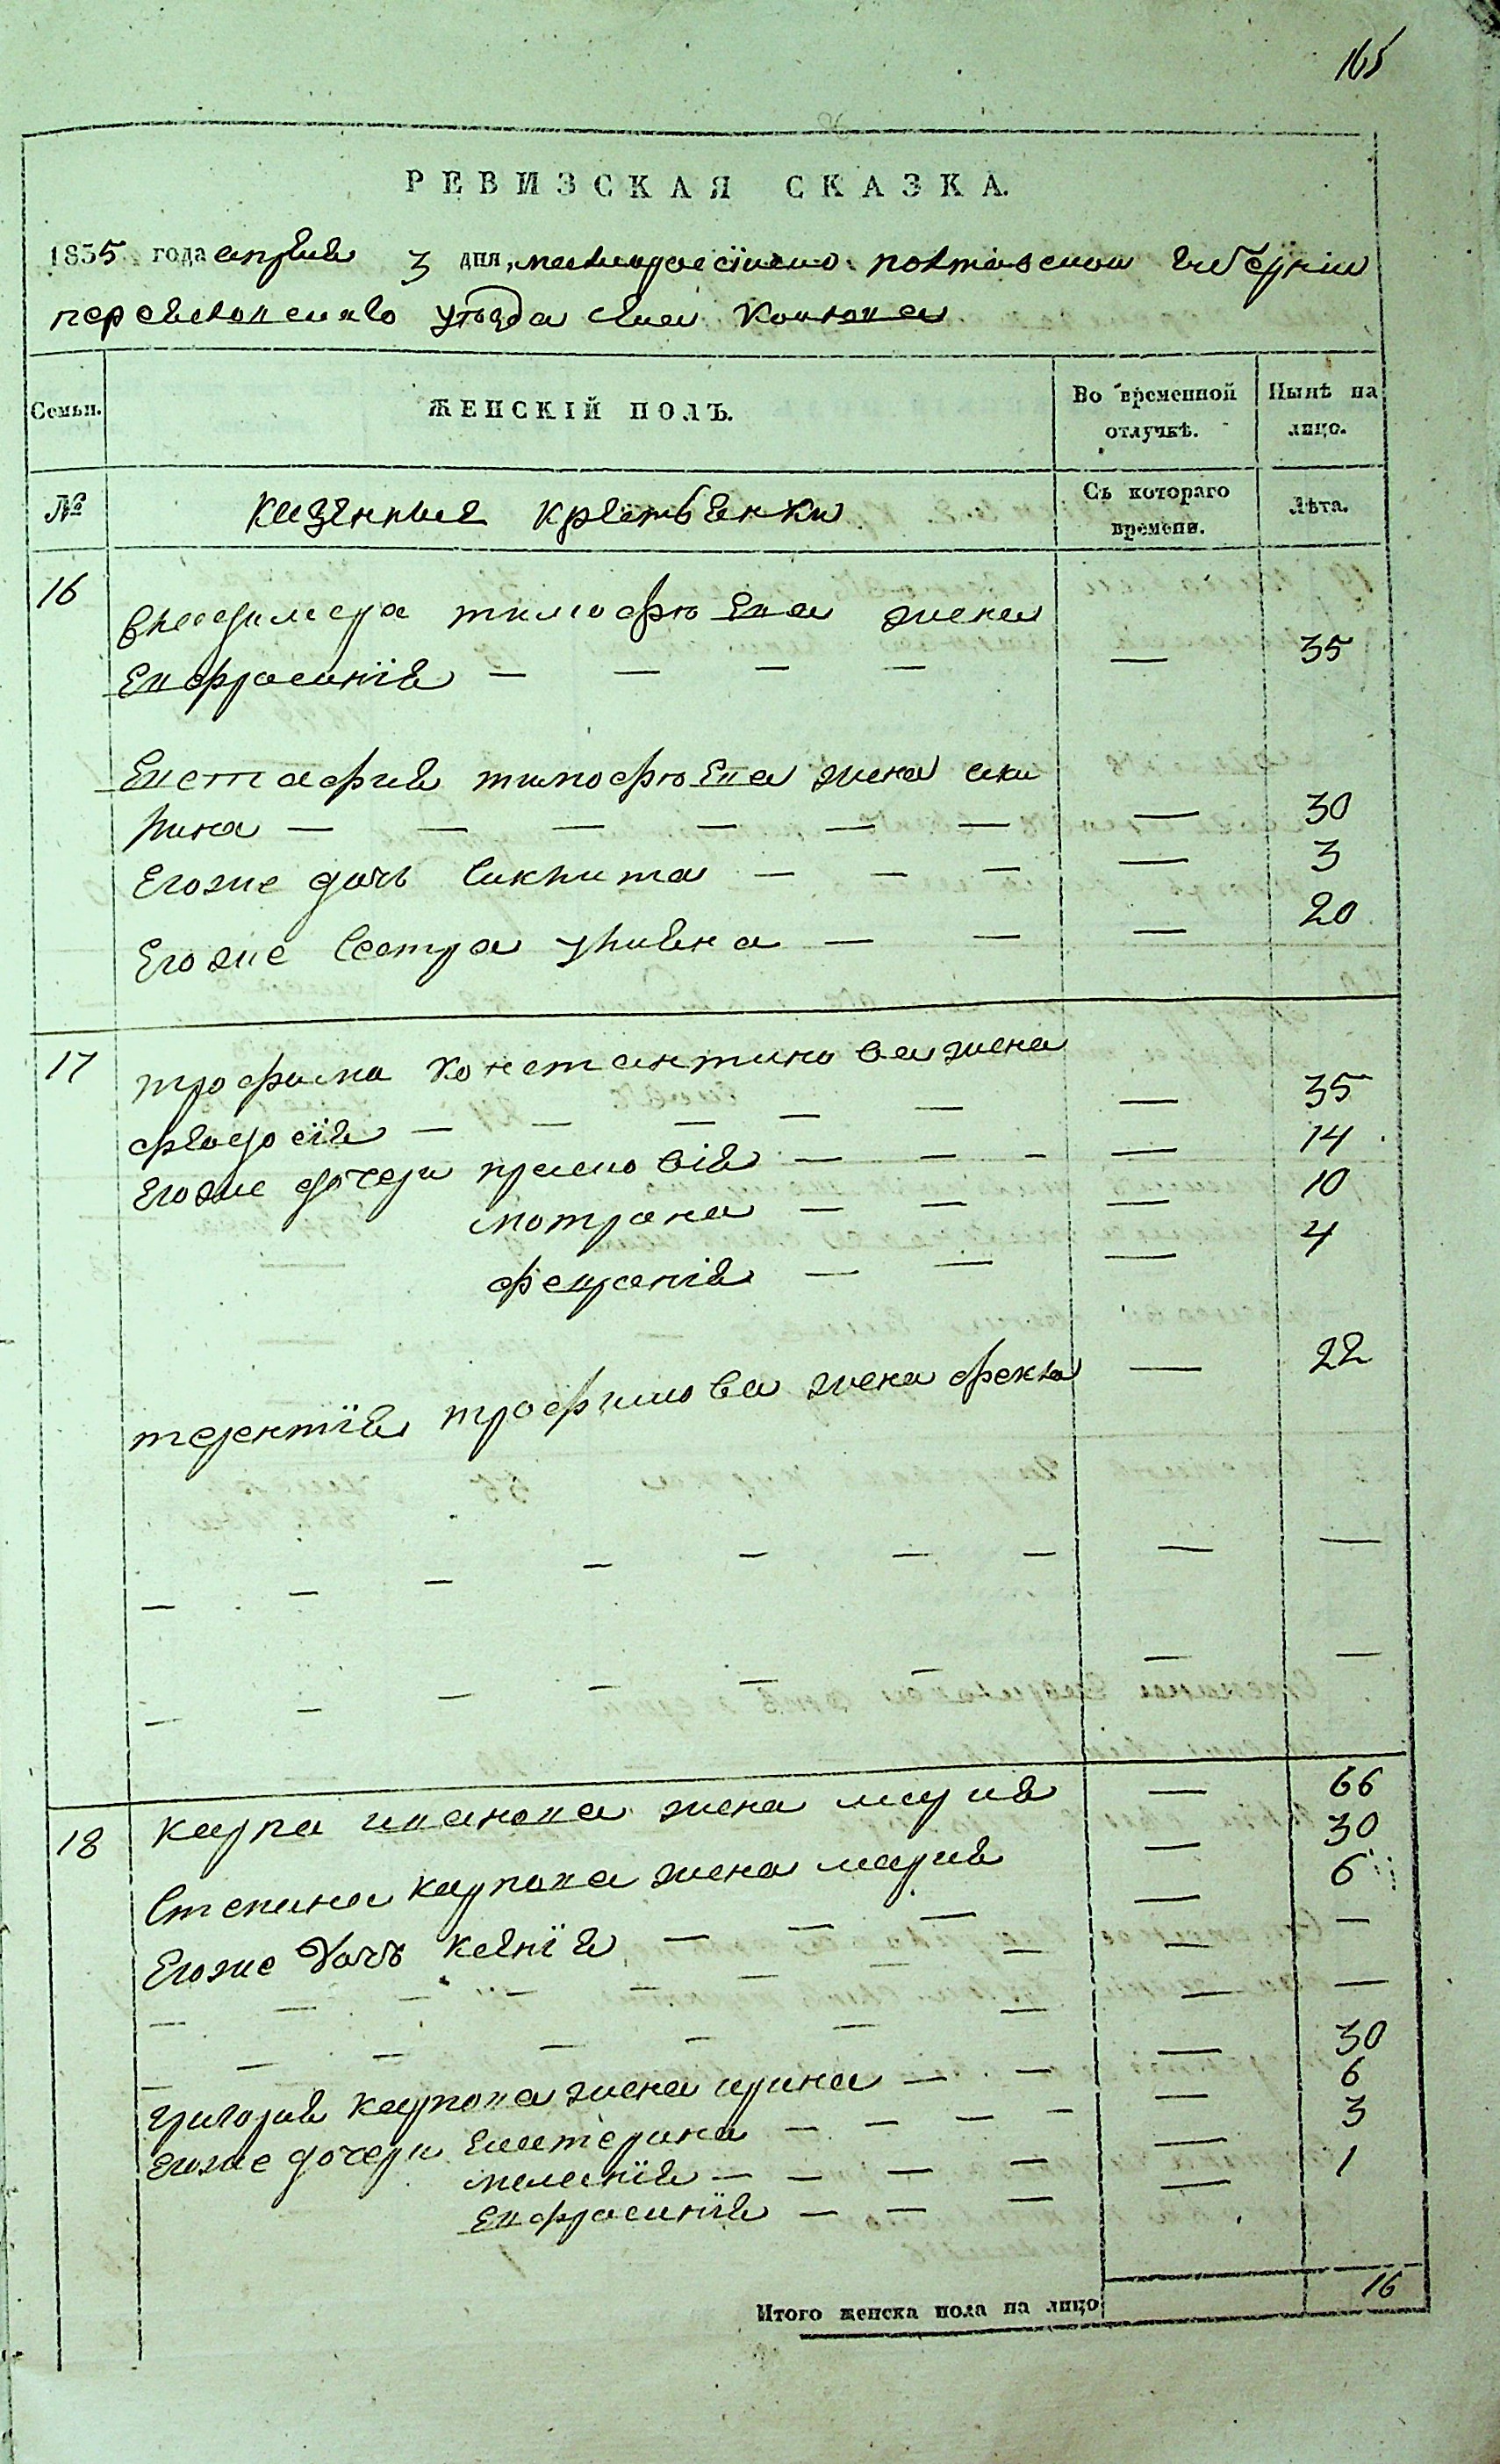 165
РЕВИЗСКАЯ СКАЗКА.
1835 года апреля 3 дня, малороссійской полтавской губерніи
переяславскаго уезда села
Семьи. ЖЕНСКІЙ ПОЛЪ. Во временной отлучкѣ. Нынѣ на лицо.
№ казенные крестьянки Съ котораго времени. Лѣта.
16 владимера тимофеева жена
евфросинія — — — — — 35
Евстафия тимофеева жена аки
лина — — — — — — — 30
Егоже дочь — — — — 3
Егоже сестра улияна — — — 20
17 трофима константинова жена
феодосія — — — — — — 35
Егоже дочери прасковія — — - — 14
мотрона — — — 10
февронія — — — 4
терентія трофимова жена фекла — 22
— — — — — — — — —
— — — — — — — —
18 карпа иванова жена мария — 66
Степана карпова жена мария — 30
Егоже дочь ксенія — — — — 6
— — — — — — — — —
— — — — — — — — —
григория карпова жена ирина — — — 30
Егоже дочери Екатерина — — — — — 6
меланія — — — — — 3
Евфросинія — — — — 1
Итого женска пола на лицо 16